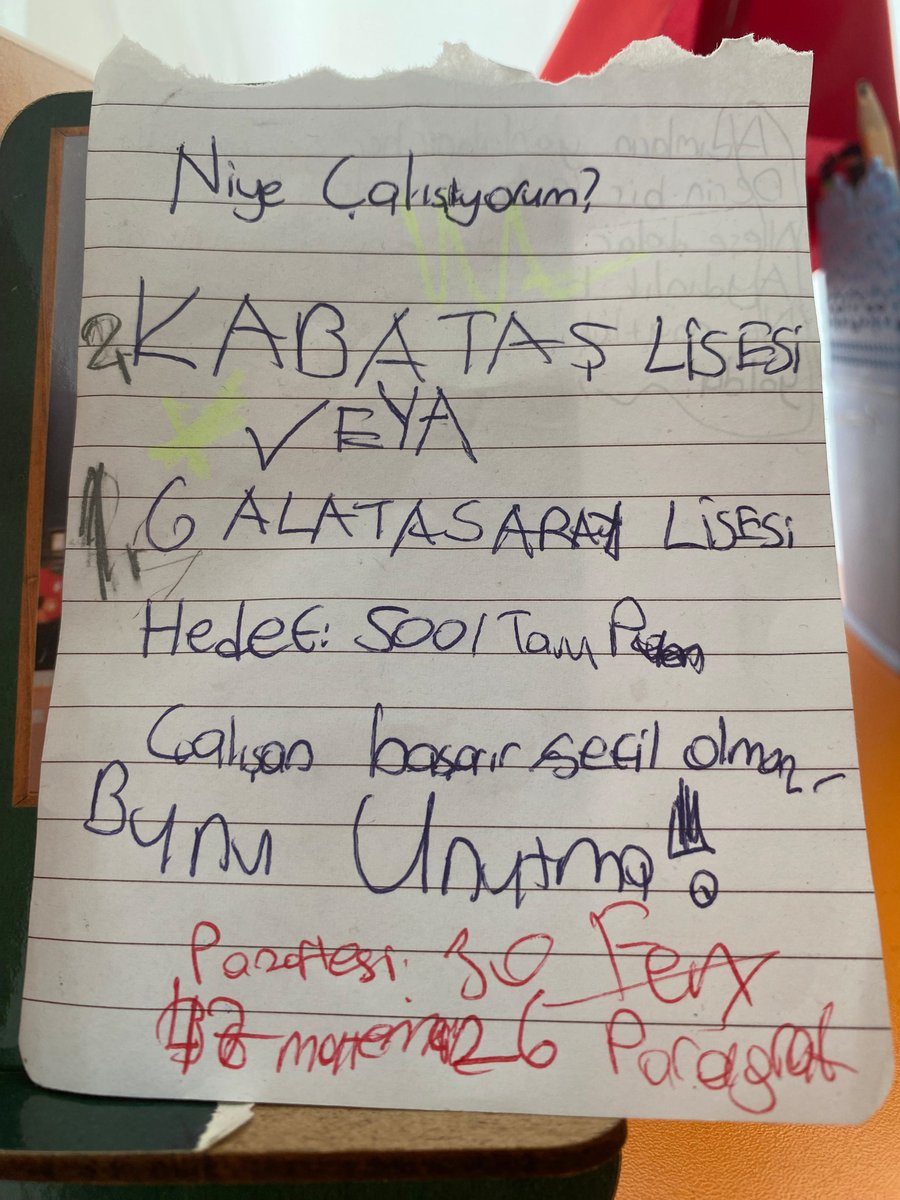 Niye Çalışıyorum?
2 KABATAŞ LİSESİ
VEYA
1. GALATASARAY LİSESİ
Hedef: 500/Tam
Çalışan başarır şeçil olmaz
Bunu Unutma!!!
Pazartesi: 30 Fen
26 Paragraf